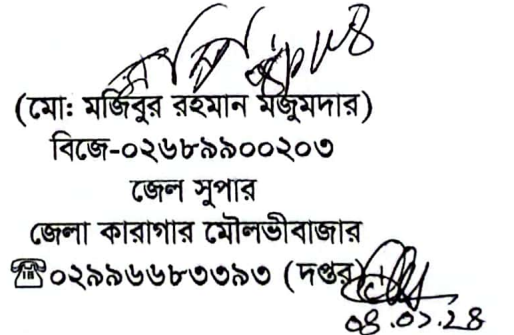 (মো: মজিবুর রহমান মজুমদার)
বিজে-০২৬৮৯৯০০২০৩
জেল সুপার
জেলা কারাগার মৌলভীবাজার
☎০২৯৯৬৬৮৩৩৯৩ (দপ্তর)